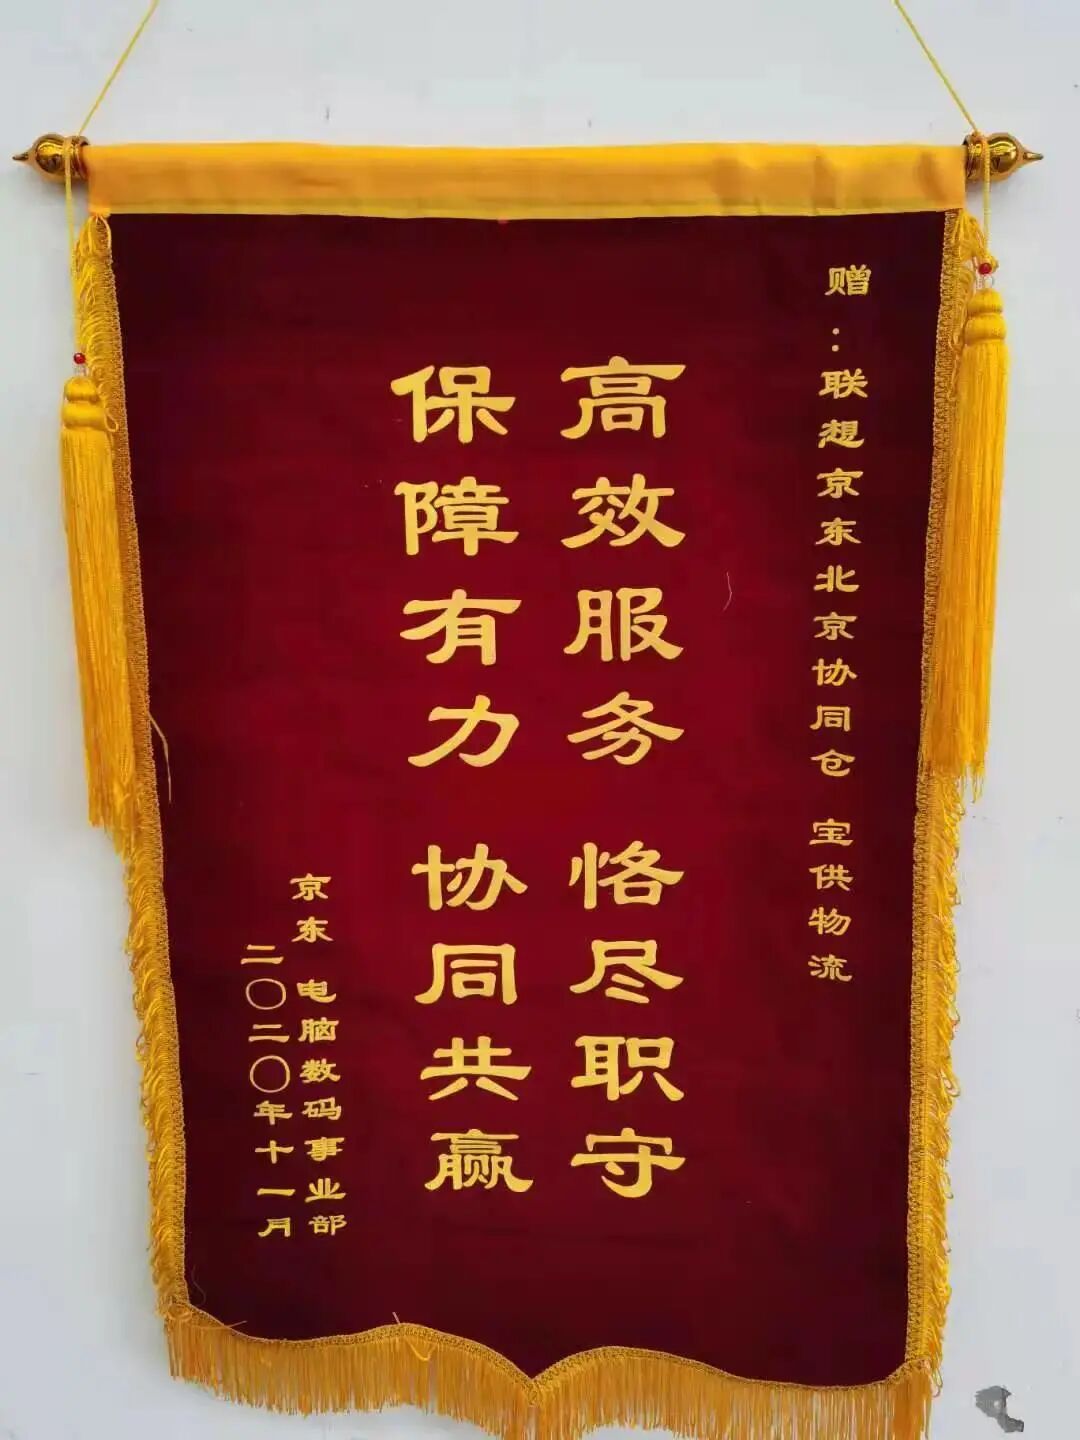 赠：联想京东北京协同仓 宝供物流
高效服务 恪尽职守
保障有力 协同共赢
京东 电脑数码事业部
二〇二〇年十一月